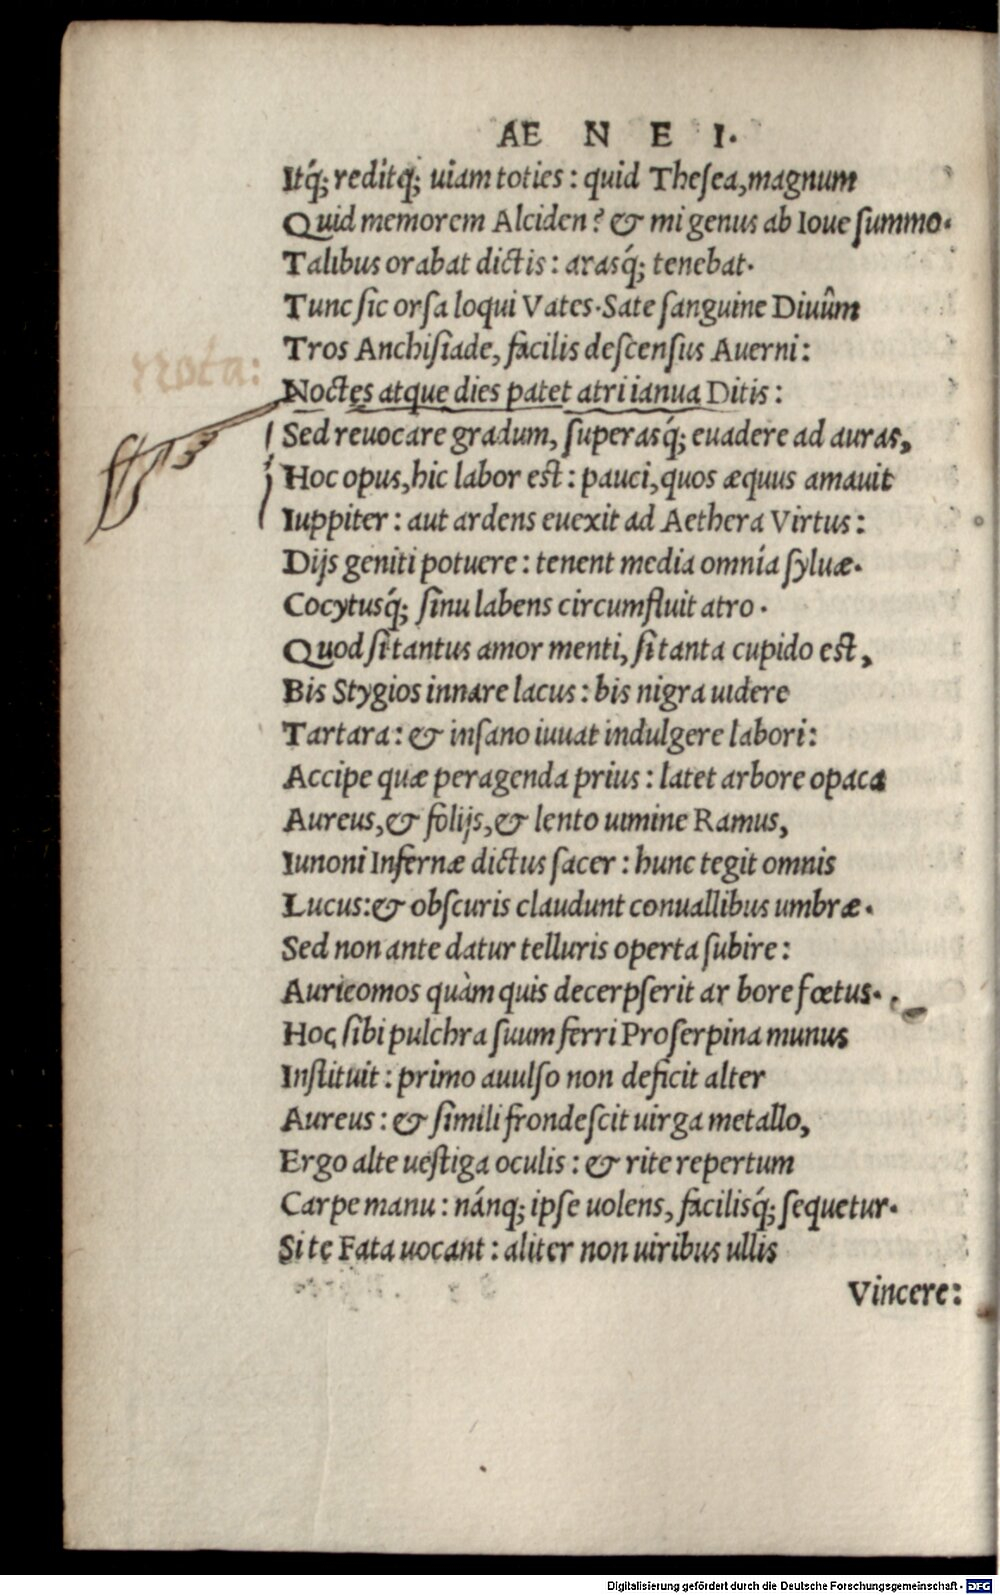 AE N E I.
Itq́; reditq́; uiam toties : quid Theſea, magnum
Quid memorem Alciden? & mi genus ab Ioue ſummo.
Talibus orabat dictis : arasq́; tenebat.
Tunc ſic orſa loqui Vates. Sate ſanguine Diuûm
Tros Anchiſiade, facilis deſcenſus Auerni :
Nota:
Noctes atque dies patet atri ianua Ditis :
Sed reuocare gradum, ſuperasq́; euadere ad auras,
Hoc opus, hic labor est : pauci, quos æquus amauit
Iuppiter : aut ardens euexit ad Aethera Virtus :
Dijs geniti potuere : tenent media omnia ſyluæ.
Cocytusq́; ſinu labens circumfluit atro .
Quod ſi tantus amor menti, ſi tanta cupido est,
Bis Stygios innare lacus : bis nigra uidere
Tartara : & inſano iuuat indulgere labori :
Accipe quæ peragenda prius : latet arbore opaca
Aureus, & folijs, & lento uimine Ramus,
Iunoni Infernæ dictus ſacer : hunc tegit omnis
Lucus: & obſcuris claudunt conuallibus umbræ.
Sed non ante datur telluris operta ſubire :
Auricomos quàm quis decerpſerit ar bore fœtus.
Hoc ſibi pulchra ſuum ferri Proſerpina munus
Inſtituit : primo auulſo non deficit alter
Aureus : & ſimili frondeſcit uirga metallo,
Ergo alte ueſtiga oculis : & rite repertum
Carpe manu : nánq; ipſe uolens, facilisq́; ſequetur.
Si te Fata uocant : aliter non uiribus ullis
Vincere:
Digitalisierung gefördert durch die Deutsche Forschungsgemeinschaft - DFG